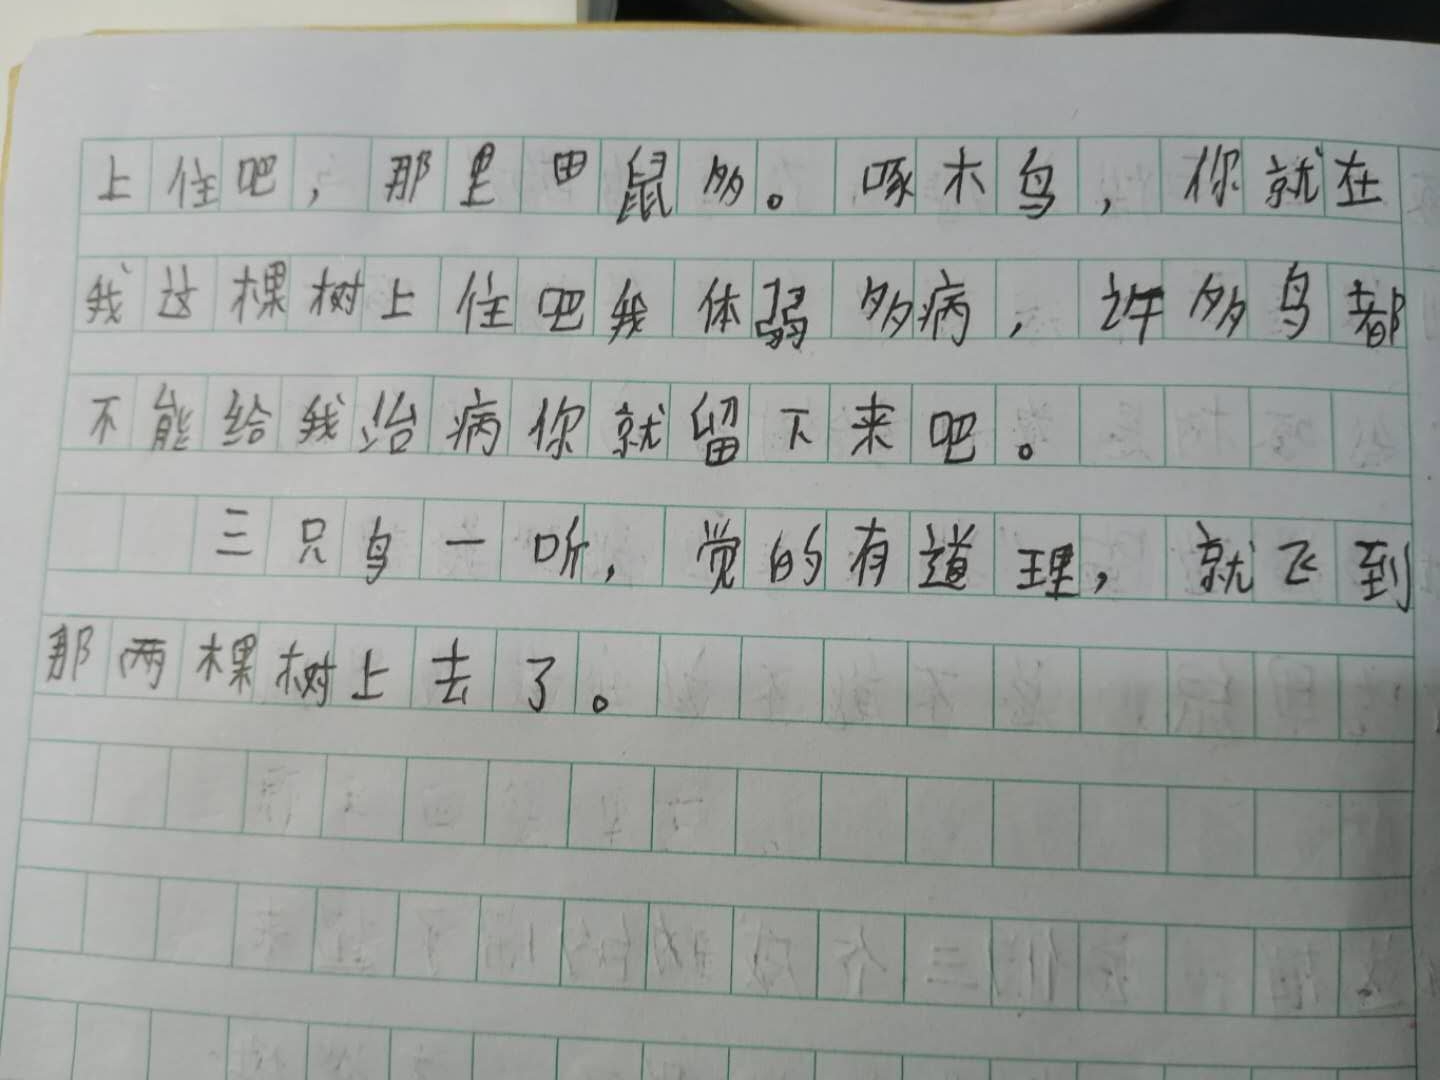 上住吧，那里田鼠多。啄木鸟，你就在
我这棵树上住吧我体弱多病，许多鸟都
不能给我治病你就留下来吧。
三只鸟一听，觉的有道理，就飞到
那两棵树上去了。